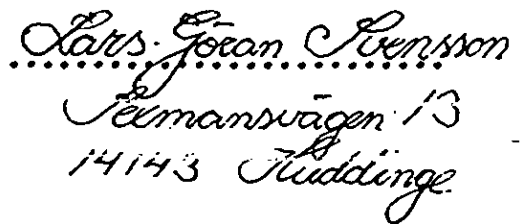 Lars-Göran Svensson
Permansvägen 13
14143 Huddinge